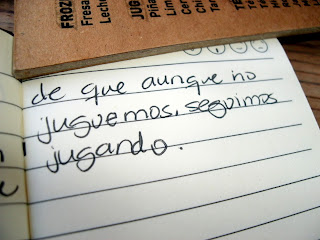 FROZ
Fresa
Lechu
JUG
Piña
de que aunque no
juguemos, seguimos
jugando.